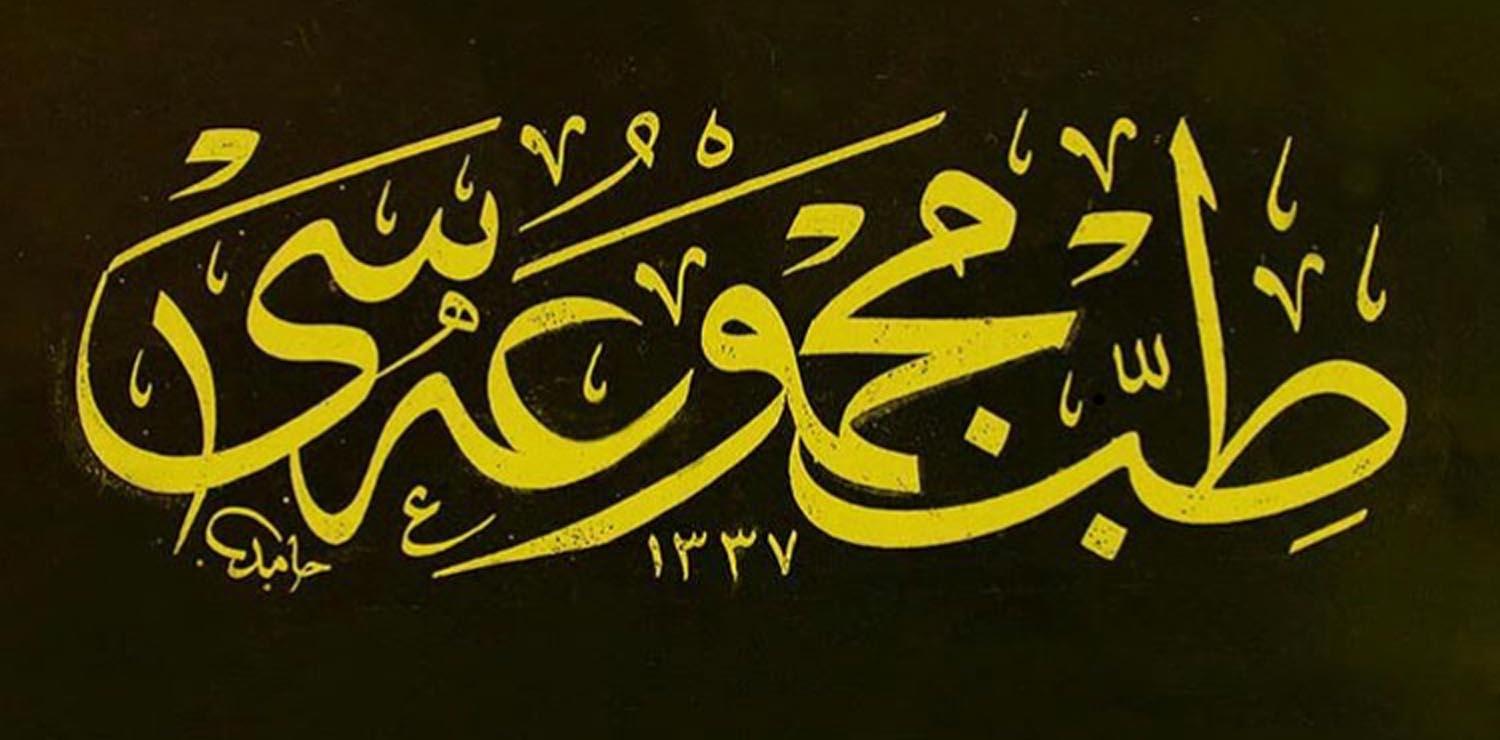 طبّ مجموعه سی
١٣٣٧
حامد